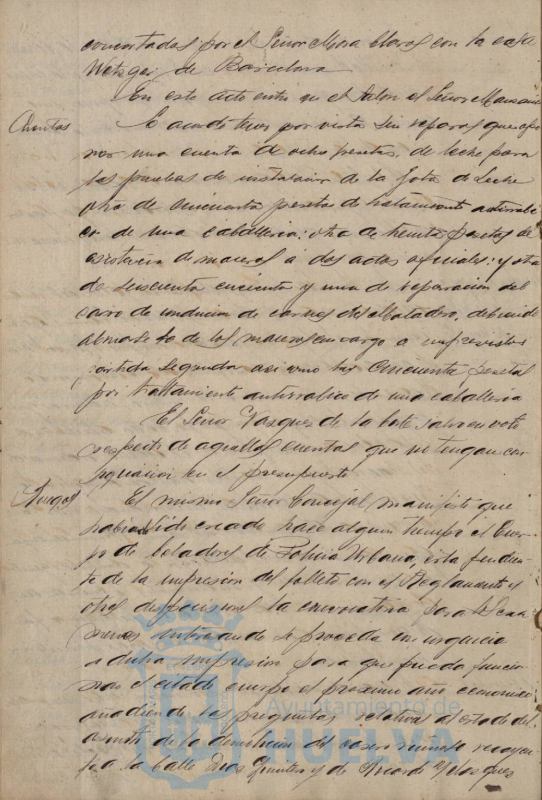 concertadas por el Señor Mora Claros con la casa
Wetzger de Barcelona
En este acto entra en el Salon el Señor
Cuentas
Se acordó tener por vista sin reparos que
una cuenta de ocho pesetas, de leche para
las pruebas de instalacion de la Gota de Leche
otra de cincuenta pesetas de tratamiento antirrabi
co de una caballeria: otra de treinta pesetas de
asistencia de maceros á dos actos oficiales: y otra
de sesenta y una de reparacion del
carro de conduccion de carnes del Matadero, debiendo
los maceros con cargo a imprevistos
partida segunda asi como las cincuenta pesetas
por tratamiento antirrabico de una caballeria
El Señor Vasquez de la Corte salva su voto
respecto de aquellas cuentas que no tengan con
signacion en el presupuesto
El mismo Señor Concejal manifestó, que
habiendo sido creado hace algun tiempo el Cuer
po de Celadores de Policia Urbana, esta pendien
te de la impresion del folleto con el Reglamento y
otras disposiciones la convocatoria para los exa
menes interesando se proceda con urgencia
a dicha impresion para que pueda funcio
nar el citado cuerpo el próximo año economico
añadiendo las preguntas relativas al estado del
asunto de la demolicion del caserio
a la Calle Dios y de Ricardo Velasquez
Ayuntamiento de
HUELVA